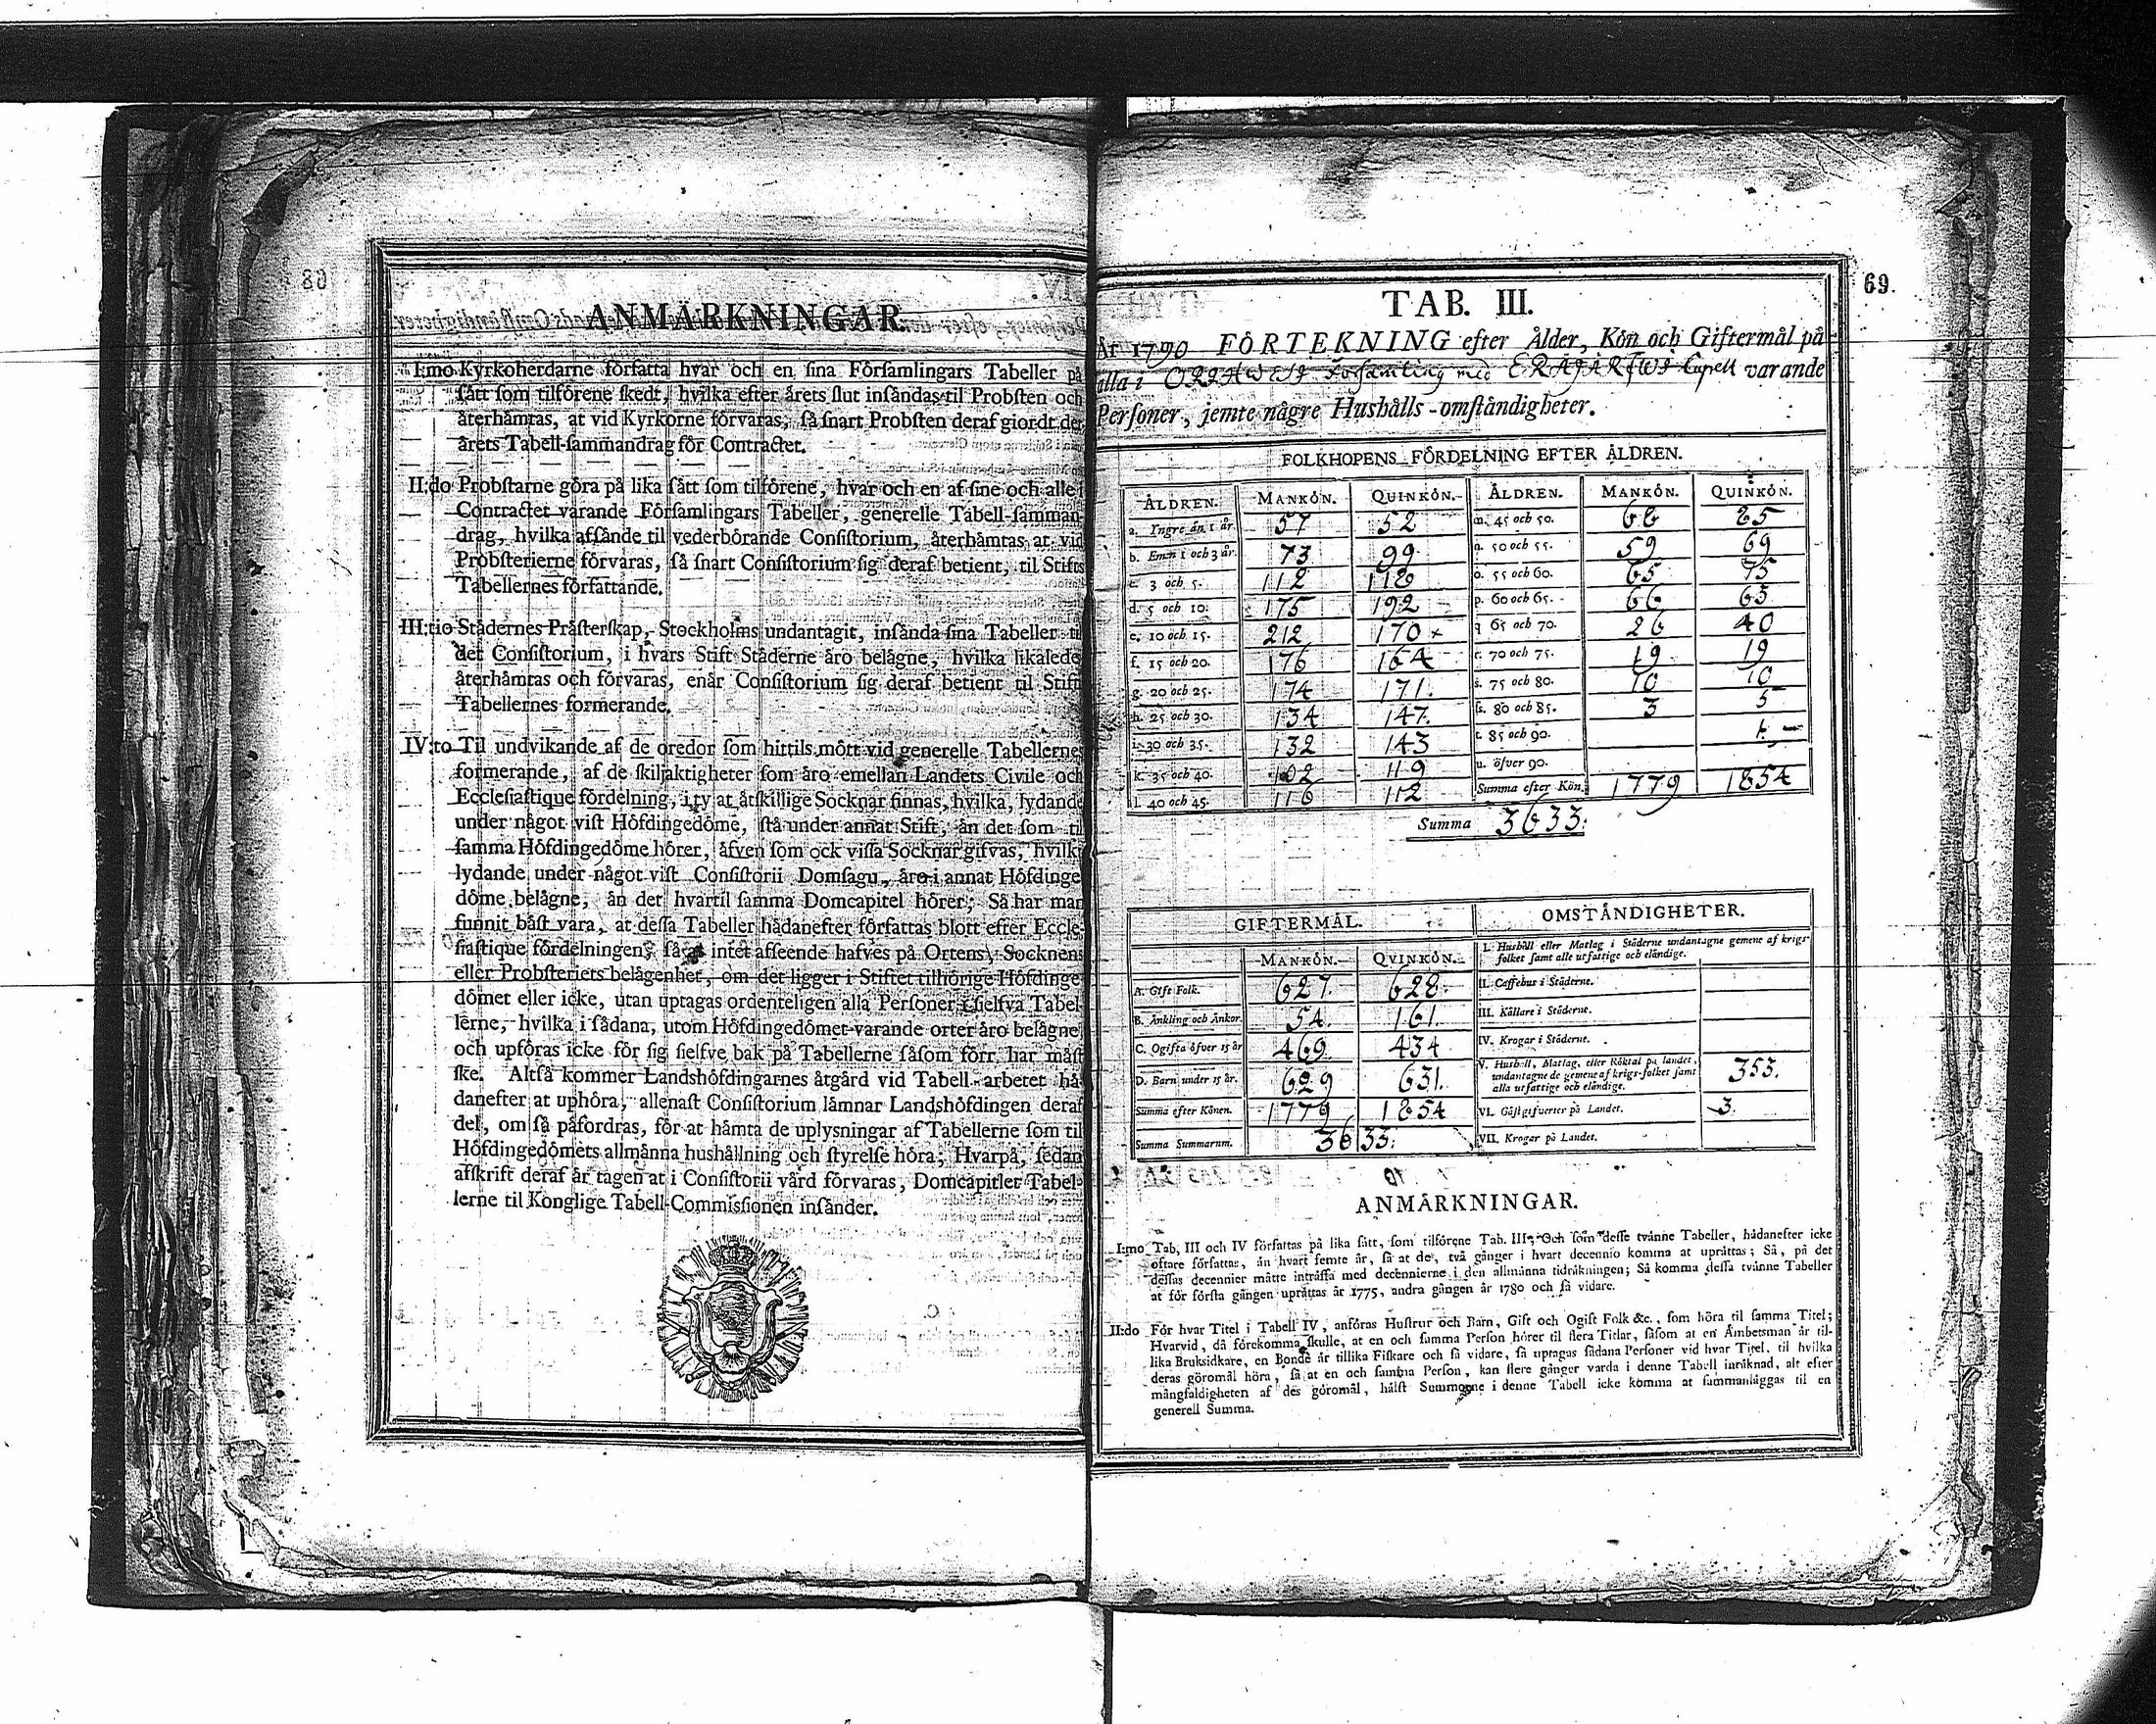 68
ANMÄRKNINGAR.
I:mo Kyrkoherdarne författa hvar och en sina Församlingars Tabeller på
sätt som tilförene skedt, hvilka efter årets slut insändas til Probsten och
återhämtas, at vid Kyrkorne förvaras, så snart Probsten deraf giordt det
årets Tabell-sammandrag för Contractet.
II:do Probstarne göra på lika sätt som tilförene, hvar och en af sine och alle i
Contractet varande Församlingars Tabeller, generelle Tabell-samman-
drag, hvilka afsände til vederbörande Consistorium, återhämtas at vid
Probsterierne förvaras, så snart Consistorium sig deraf betient, til Stifts
Tabellernes författande.
III:tio Städernes Prästerskap, Stockholms undantagit, insända sina Tabeller til
det Consistorium, i hvars Stift Städerne äro belägne, hvilka likalede
återhämtas och förvaras, enär Consistorium sig deraf betient til Stifts
Tabellernes formerande.
IV:to Til undvikande af de oredor som hittils mött vid generelle Tabellernes
formerande, af de skiljaktigheter som äro emellan Landets Civile och
Ecclesiastique fördelning, i ty at åtskillige Socknar finnas, hvilka, lydande
under något vist Höfdingedöme, stå under annat Stift, än det som til
samma Höfdingedöme hörer, äfven som ock vissa Socknar gifvas, hvilke
lydande under något vist Consistorii Domsagu, äro i annat Höfdinge-
döme belägne, än det hvartil samma Domcapitel hörer; Så har man
funnit bäst vara, at dessa Tabeller hädanefter författas blott efter Eccle-
siastique fördelningen, så at intet afseende hafves på Ortens, Socknens
eller Probsteriets belägenhet, om det ligger i Stiftet tilhörige Höfdinge-
dömet eller icke, utan uptagas ordenteligen alla Personer i sielfva Tabel-
lerne, hvilka i sådana, utom Höfdingedömet varande orter äro belägne,
och upföras icke för sig sielfve bak på Tabellerne såsom förr har måst
ske. Altså kommer Landshöfdingarnes åtgärd vid Tabell-arbetet hä-
danefter at uphöra, allenast Consistorium lämnar Landshöfdingen deraf
del, om så påfordras, för at hämta de uplysningar af Tabellerne som til
Höfdingedömets allmänna hushållning och styrelse höra; Hvarpå, sedan
afskrift deraf är tagen at i Consistorii vård förvaras, Domcapitlet Tabel-
lerne til Konglige Tabell-Commissionen insänder.
69.
TAB. III.
År 1790 FÖRTEKNING efter Ålder, Kön och Giftermål på
alla i ORIHWESI Församling med ERÄJÄRFWI Capell varande
Personer, jemte någre Hushålls-omständigheter.
FOLKHOPENS FÖRDELNING EFTER ÅLDREN.
ÅLDREN. MANKÖN. QUINKÖN. ÅLDREN. MANKÖN. QUINKÖN.
a. Yngre än 1 år. 57 52 m. 45 och 50. 68 85
b. Emn 1 och 3 år. 73 99 n. 50 och 55. 59 69
c. 3 och 5. 112 118 o. 55 och 60. 65 75
d. 5 och 10. 175 192 p. 60 och 65. 66 63
e. 10 och 15. 212 170 q. 65 och 70. 26 40
f. 15 och 20. 176 164 r. 70 och 75. 19 19
g. 20 och 25. 174 171. s. 75 och 80. 10 10
h. 25 och 30. 134 147. ſ. 80 och 85. 3 5
i. 30 och 35. 132 143 t. 85 och 90. 1. -
k. 35 och 40. 102 119 u. öfver 90.
l. 40 och 45. 116 112 Summa efter Kön. 1779 1854
Summa 3633.
GIFTERMÅL. OMSTÄNDIGHETER.
MANKÖN. QVINKÖN.
I. Hushåll eller Matlag i Städerne undantagne gemene af krigs-
folket samt alle utfattige och eländige.
A. Gift Folk. 627. 628. II. Caffehus i Städerne.
B. Änkling och Änkor. 54. 161. III. Källare i Städerne.
C. Ogifta öfver 15 år 469. 434 IV. Krogar i Städerne.
D. Barn under 15 år. 629 631. V. Hushåll, Matlag, eller Röktal på landet,
undantagne de gemene af krigs-folket samt
alla utfattige och eländige. 353.
Summa efter Könen. 1779 1854 VI. Gästgifverier på Landet. 3.
Summa Summarum. 3633. VII. Krogar på Landet.
ANMÄRKNINGAR.
I:mo Tab. III och IV författas på lika sätt, som tilförene Tab. III; Och som desse tvänne Tabeller, hädanefter icke
oftare författas, än hvart femte år, så at de, två gånger i hvart decennio komma at uprättas; Så, på det
dessas decennier måtte inträffa med decennierne i den allmänna tidräkningen; Så komma dessa tvänne Tabeller
at för första gången uprättas år 1775, andra gången år 1780 och så vidare.
II:do För hvar Titel i Tabell IV, anföras Hustrur och Barn, Gift och Ogift Folk &c., som höra til samma Titel;
Hvarvid, då förekomma skulle, at en och samma Person hörer til flera Titlar, såsom at en Ämbetsman är til-
lika Bruksidkare, en Bonde är tillika Fiskare och så vidare, så uptagas sådana Personer vid hvar Titel, til hvilka
deras göromål höra, så at en och samma Person, kan flere gånger varda i denne Tabell inräknad, alt efter
mångfaldigheten af des göromål, hälst Summorne i denne Tabell icke komma at sammanläggas til en
generell Summa.